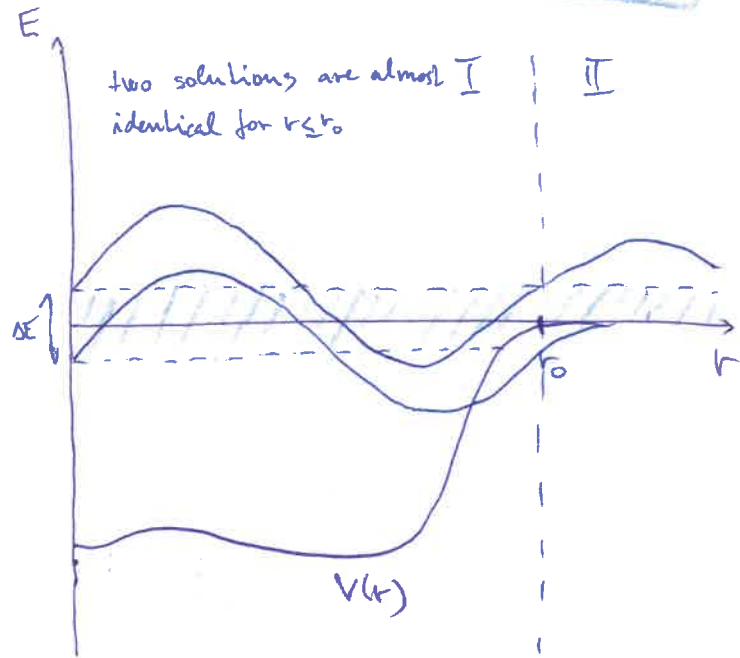 E
two solutions are almost I II
identical for r ≤ r₀
ΔE
r₀ r
V(r)